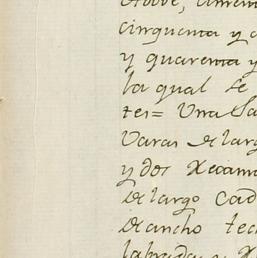 cinquenta y
y quarenta y
la qual se
tes= Una Sa
Varas de larg
y dos Recam
de largo cad
de ancho tec
labradas y